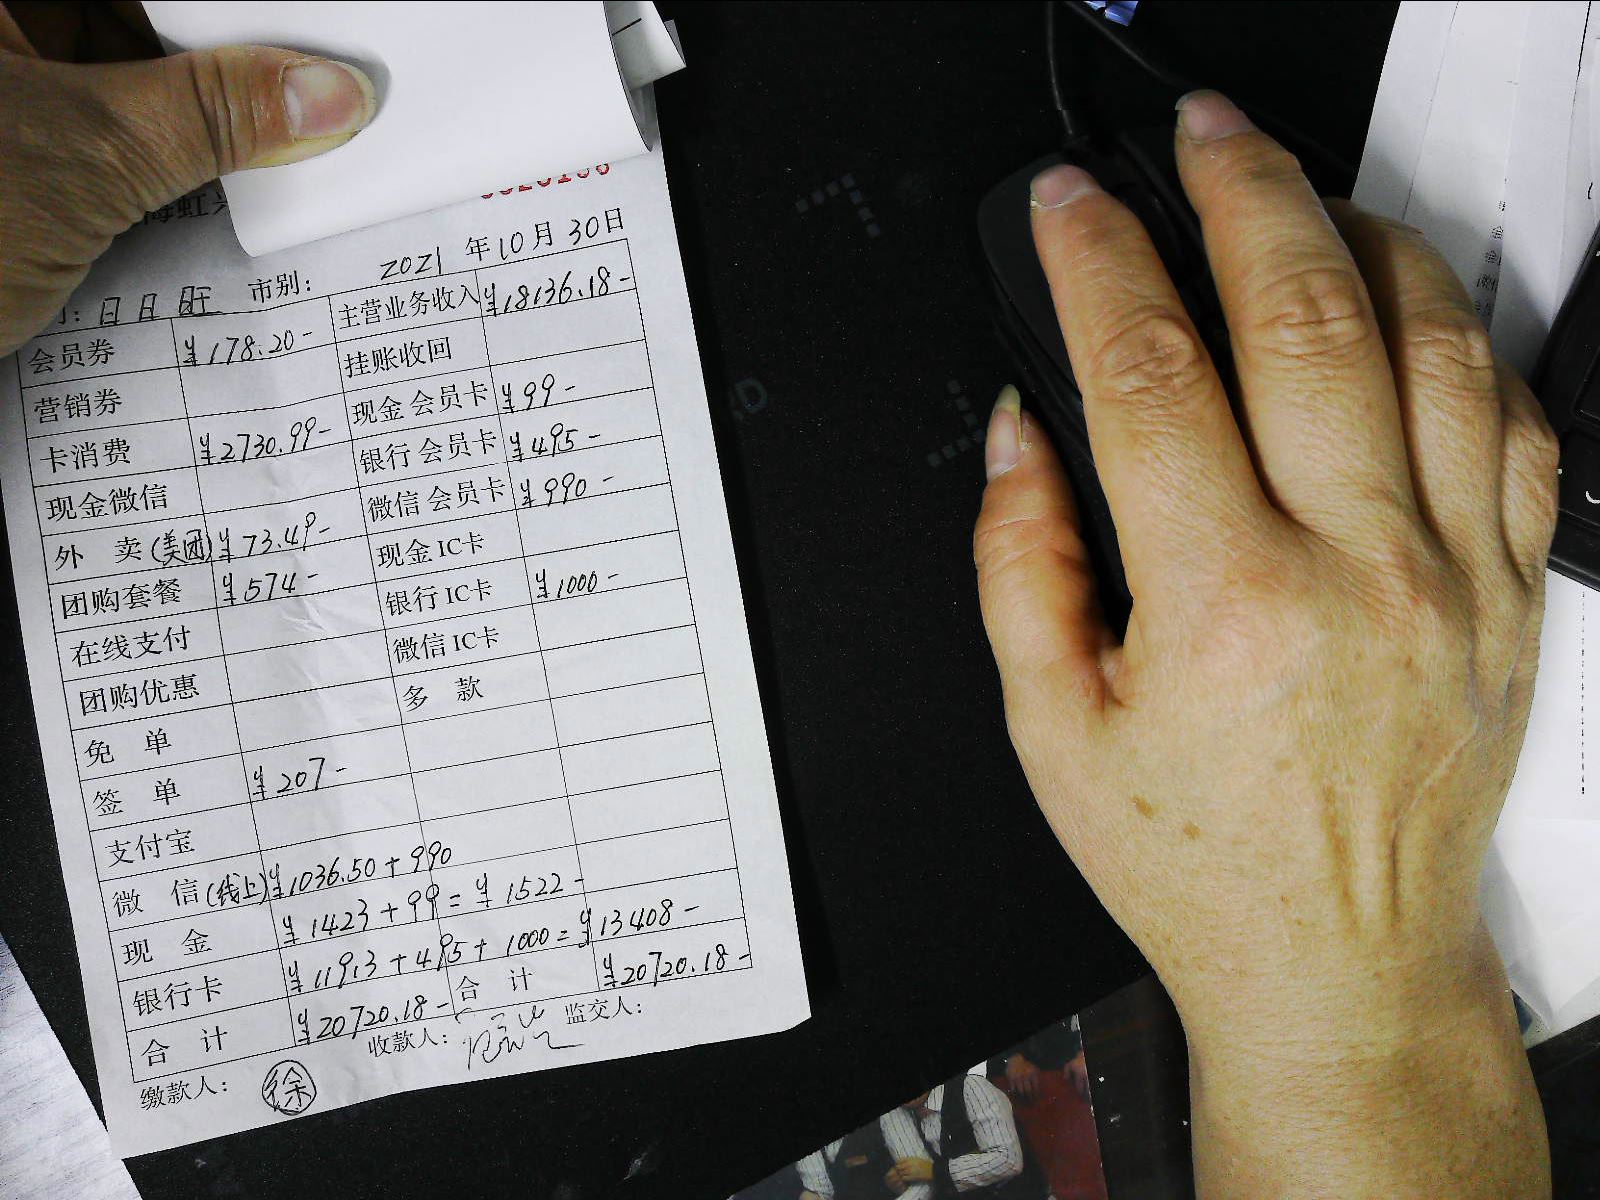 2021 年 10 月 30 日
日日旺 市别：
会员券 ¥178.20- 主营业务收入 ¥18136.18-
营销券 挂账收回
卡消费 ¥2730.99- 现金会员卡 ¥99-
现金微信 银行会员卡 ¥495-
外 卖(美团) ¥73.49- 微信会员卡 ¥990-
团购套餐 ¥574- 现金IC卡
在线支付 银行IC卡 ¥1000-
团购优惠 微信IC卡
免 单 多 款
签 单 ¥207-
支付宝
微 信(线上) ¥1036.50+990
现 金 ¥1423+99=¥1522-
银行卡 ¥11913+495+1000=¥13408-
合 计 ¥20720.18- 合 计 ¥20720.18-
缴款人： 徐 收款人： 监交人：